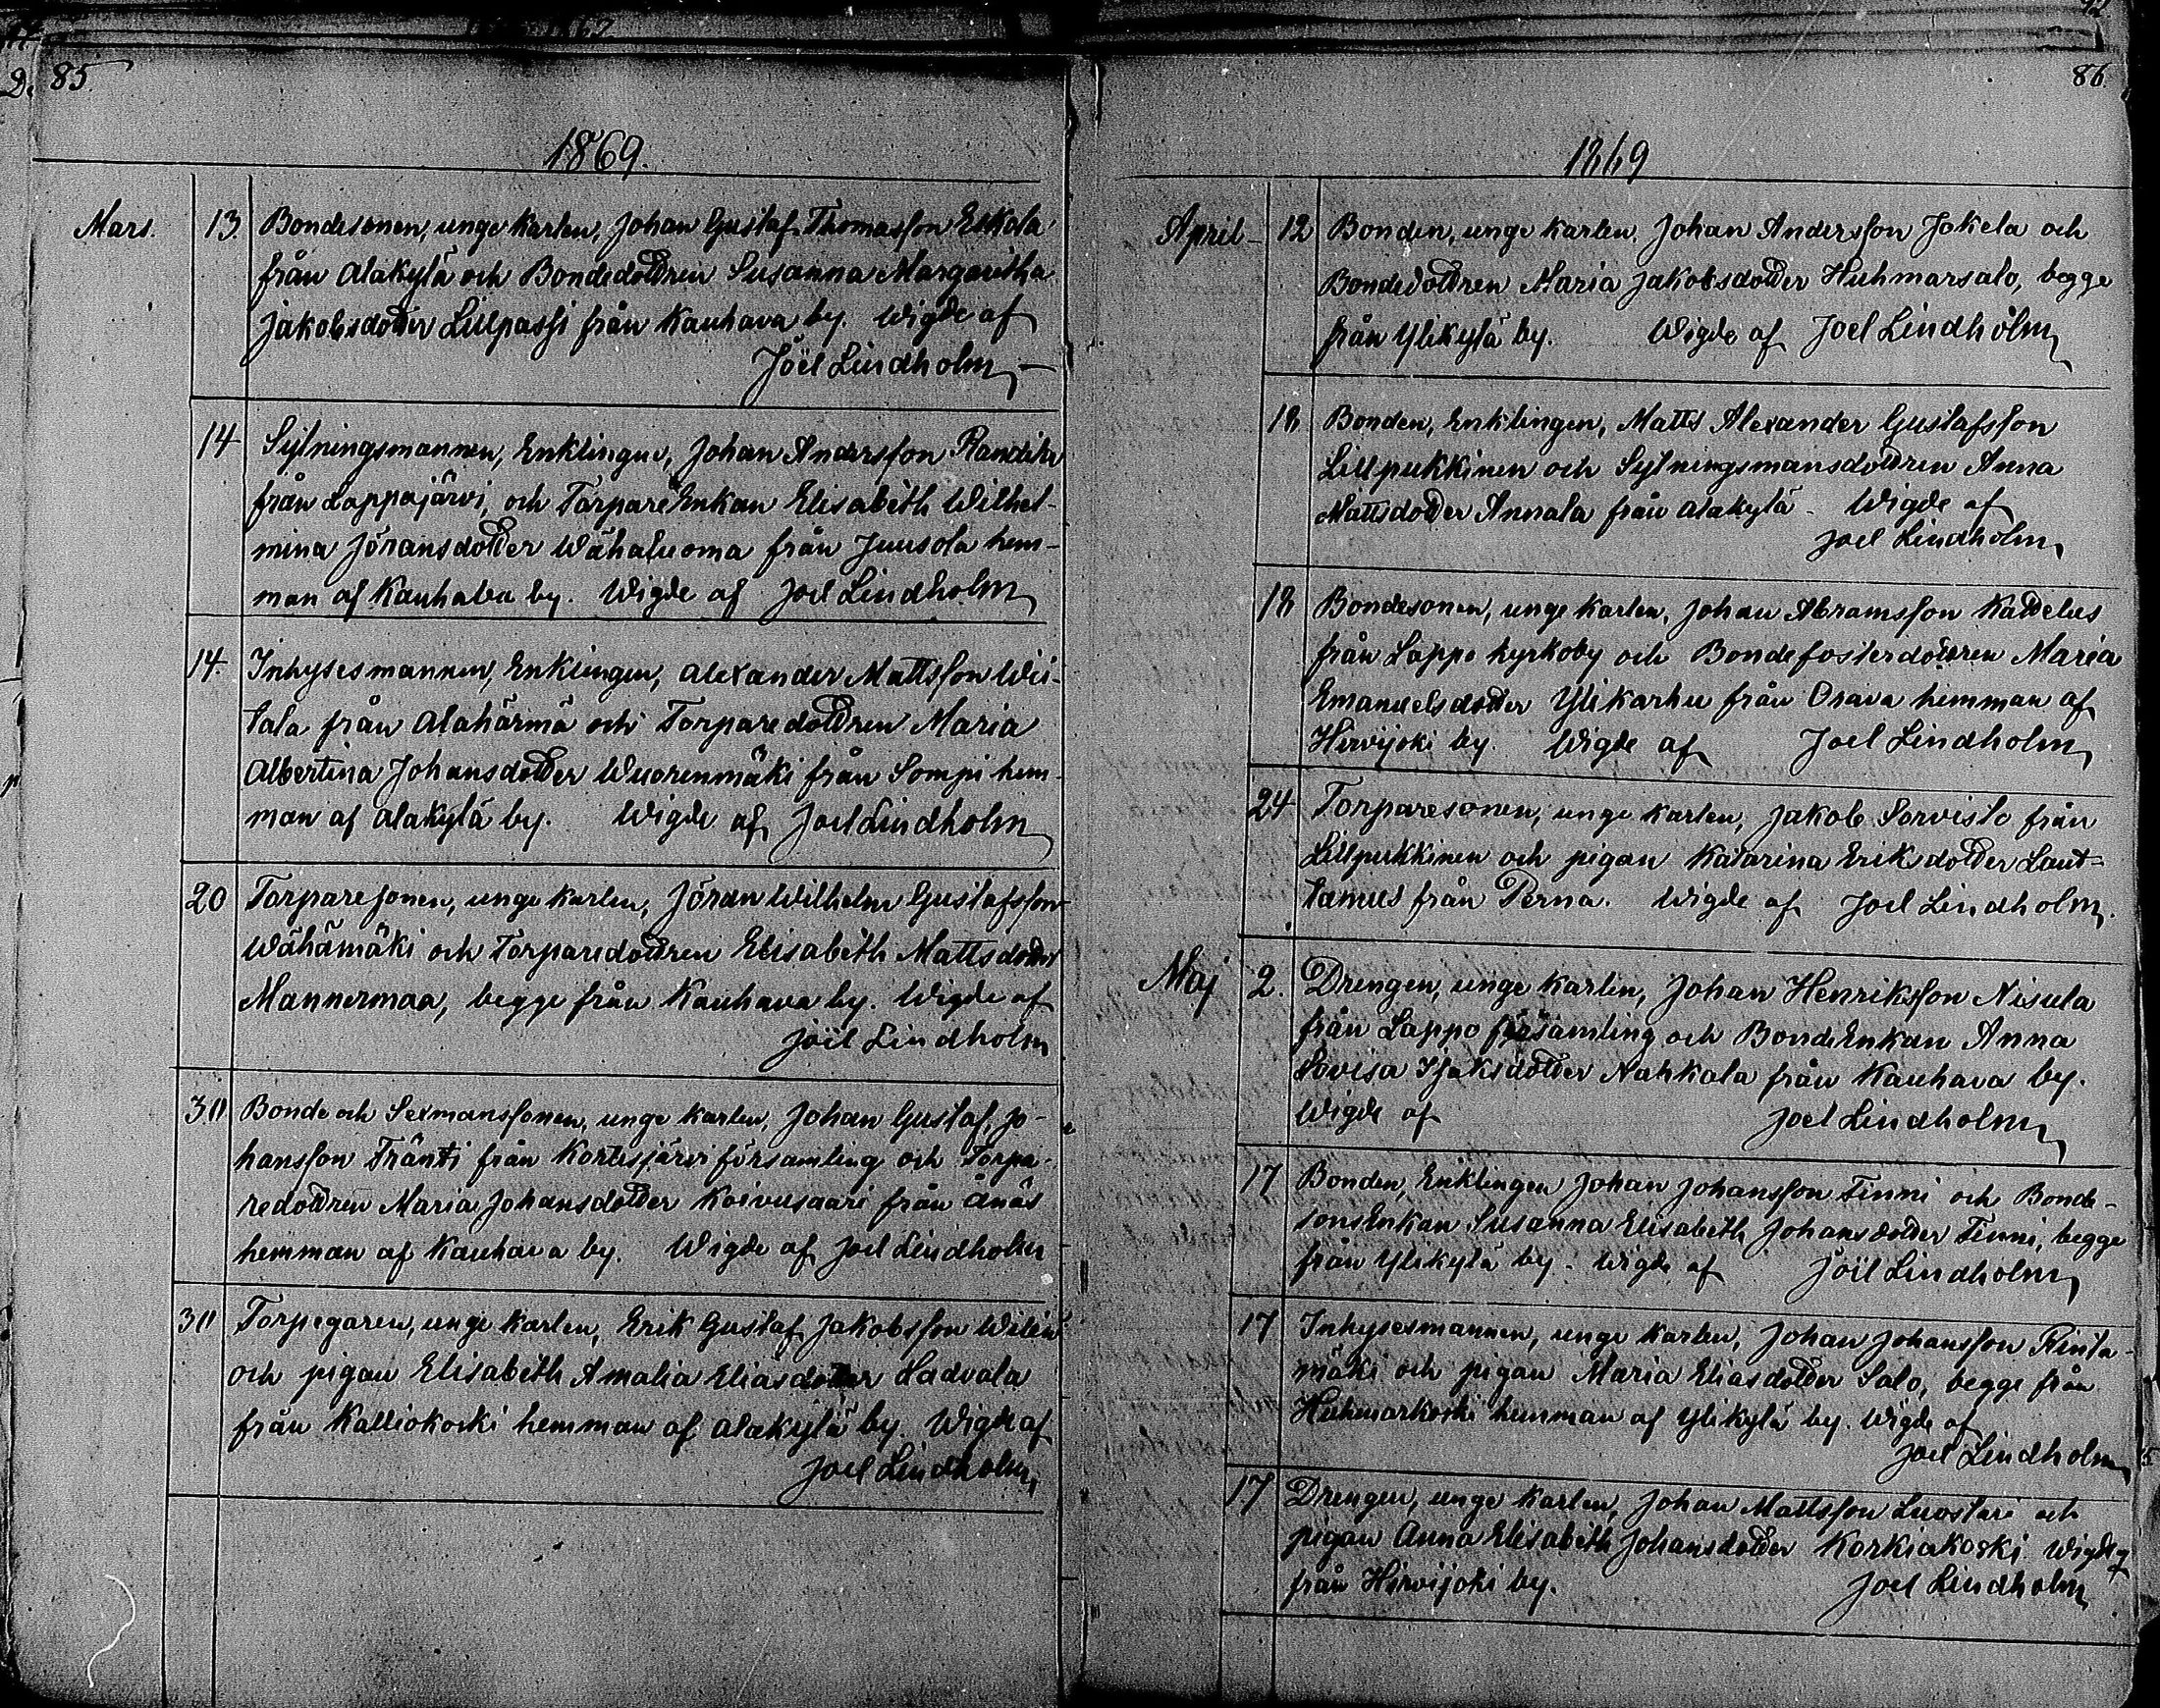 85.
1869.
Mars. 13. Bondesonen, unge karlen, Johan Gustaf Thomasson Eskola
från Alakylä och Bondedottren Susanna Margaretha
Jakobsdotter Lillpassi från Kauhava by. Wigde af
Joël Lindholm
14 Sytningsmannen, Enklingen, Johan Andersson
från Lappajärvi, och Torpare Enkan Elisabeth Wilhel-
mina Jöransdotter Wähaluoma från Juusola hem-
man af Kauhava by. Wigde af Joel Lindholm
14. Inhysesmannen, Enklingen, Alexander Mattsson Wii-
tala från Alahärmä och Torparedottren Maria
Albertina Johansdotter Wuorenmäki från Sompi hem-
man af Alakylä by. Wigde af Joel Lindholm
20 Torparesonen, unge karlen, Jöran Wilhelm Gustafsson
Wähämäki och Torparedottren Elisabeth Mattsdotter
Mannermaa, begge från Kauhava by. Wigde af
Joël Lindholm
30 Bonde och Sexmanssonen, unge karlen, Johan Gustaf, Jo-
hansson Fränti från Kortesjärvi församling och Torpa-
redottren Maria Johansdotter Koivusaari från Ånäs
hemman af Kauhava by. Wigde af Joel Lindholm
30 Torpegaren, unge karlen, Erik Gustaf Jakobsson Wilén
och pigan Elisabeth Amalia Eliasdotter Hadvala
från Kalliokoski hemman af Alakylä by. Wigde af
Joel Lindholm
86.
1869
April 12 Bonden, unge karlen, Johan Andersson Jokela och
Bondedottren Maria Jakobsdotter Huhmarsalo, begge
från Ylikylä by. Wigde af Joel Lindholm
18 Bonden, Enklingen, Matts Alexander Gustafsson
Lillpukkinen och Sytningsmansdottren Anna
Mattsdotter Annala från Alakylä. Wigde af
Joel Lindholm
18 Bondesonen, unge karlen, Johan Abramsson Kattelus
från Lappo kyrkoby och Bondefosterdottren Maria
Emanuelsdotter Ylikarhu från Orava hemman af
Hirvijoki by. Wigde af Joel Lindholm
24 Torparesonen, unge karlen, Jakob Sorvisto från
Lillpukkinen och pigan Katarina Eriksdotter Laut-
tamus från Perna. Wigde af Joel Lindholm.
Maj 2. Drengen, unge karlen, Johan Henriksson Nisula
från Lappo församling och BondeEnkan Anna
Lovisa Isaksdotter Nahkala från Kauhava by.
Wigde af Joel Lindholm
17 Bonden, Enklingen Johan Johansson Finni och Bonde-
sonsEnkan Susanna Elisabeth Johansdotter Finni, begge
från Ylikylä by. Wigde af Joël Lindholm
17 Inhysesmannen, unge karlen, Johan Johansson Rinta-
mäki och pigan Maria Eliasdotter Salo, begge från
Huhmarkoski hemman af Ylikylä by. Wigde af
Joel Lindholm
17 Drengen, unge karlen, Johan Mattsson Luostari och
pigan Anna Elisabeth Johansdotter Korkiakoski Wigde af
från Hirvijoki by. Joel Lindholm